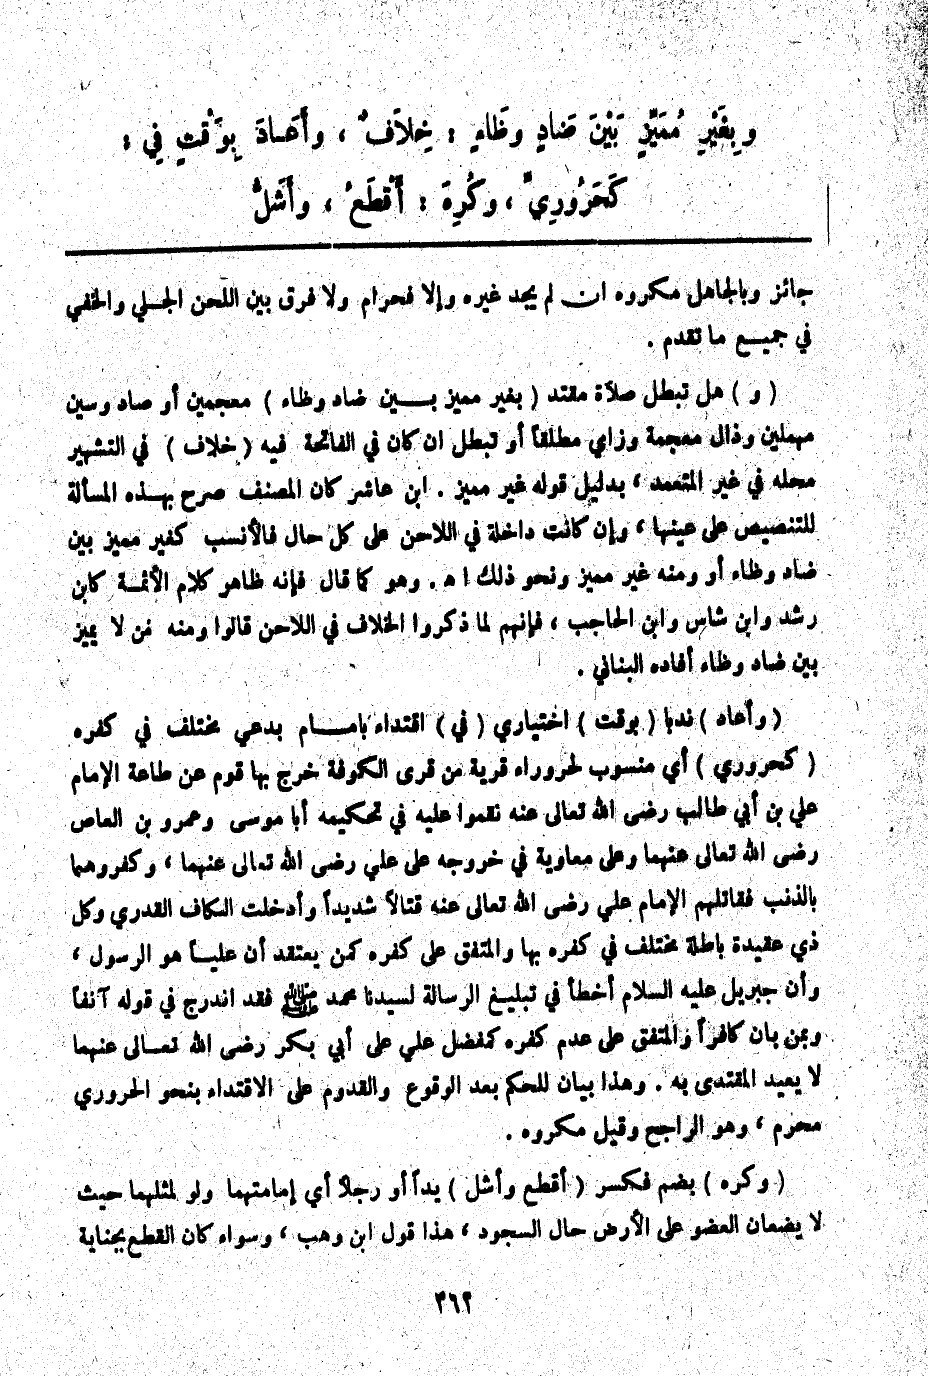 وبِغَيْرِ مُمَيِّزٍ بَيْنَ ضَادٍ وظَاءٍ : خِلاَفٌ ، وأَعَادَ بِوَقْتٍ فِي :
كَحَرُورِيٍّ ، وكُرِهَ : أَقْطَعُ ، وأَشَلُّ
جائز وبالجاهل مكروه ان لم يجد غيره وإلا فحرام ولا فرق بين اللحن الجلي والخفي
في جميع ما تقدم .
( و ) هل تبطل صلاة مقتد ( بغير مميز بين ضاد وظاء ) معجمين أو صاد وسين
مهملين وذال معجمة وزاي مطلقاً أو تبطل ان كان في الفاتحة فيه ( خلاف ) في التشهير
محله في غير المتعمد ، بدليل قوله غير مميز . ابن عاشر كان المصنف صرح بهذه المسألة
للتنصيص على عينها ، وإن كانت داخلة في اللاحن على كل حال فالأنسب كغير مميز بين
ضاد وظاء أو ومنه غير مميز ونحو ذلك ا ه . وهو كما قال فإنه ظاهر كلام الأئمة كابن
رشد وابن شاس وابن الحاجب ، فإنهم لما ذكروا الخلاف في اللاحن قالوا ومنه من لا يميز
بين ضاد وظاء أفاده البناني .
( وأعاد ) ندبا ( بوقت ) اختياري ( في ) اقتداء بامام بدعي مختلف في كفره
( كحروري ) أي منسوب لحروراء قرية من قرى الكوفة خرج بها قوم عن طاعة الإمام
علي بن أبي طالب رضى الله تعالى عنه نقموا عليه في تحكيمه أبا موسى وعمرو بن العاص
رضى الله تعالى عنهما وعلى معاوية في خروجه على علي رضى الله تعالى عنهما ، وكفروهما
بالذنب فقاتلهم الإمام علي رضى الله تعالى عنه قتالاً شديداً وأدخلت الكاف القدري وكل
ذي عقيدة باطلة مختلف في كفره بها والمتفق على كفره كمن يعتقد أن علياً هو الرسول ،
وأن جبريل عليه السلام أخطأ في تبليغ الرسالة لسيدنا محمد ﷺ فقد اندرج في قوله آنفاً
وبمن بان كافراً والمتفق على عدم كفره كمفضل علي على أبي بكر رضى الله تعالى عنهما
لا يعيد المقتدى به . وهذا بيان للحكم بعد الوقوع والقدوم على الاقتداء بنحو الحروري
محرم ، وهو الراجح وقيل مكروه .
( وكره ) بضم فكسر ( أقطع وأشل ) يداً أو رجلاً أي إمامتهما ولو لمثلهما حيث
لا يضعان العضو على الأرض حال السجود ، هذا قول ابن وهب ، وسواء كان القطع بجناية
٣٦٢